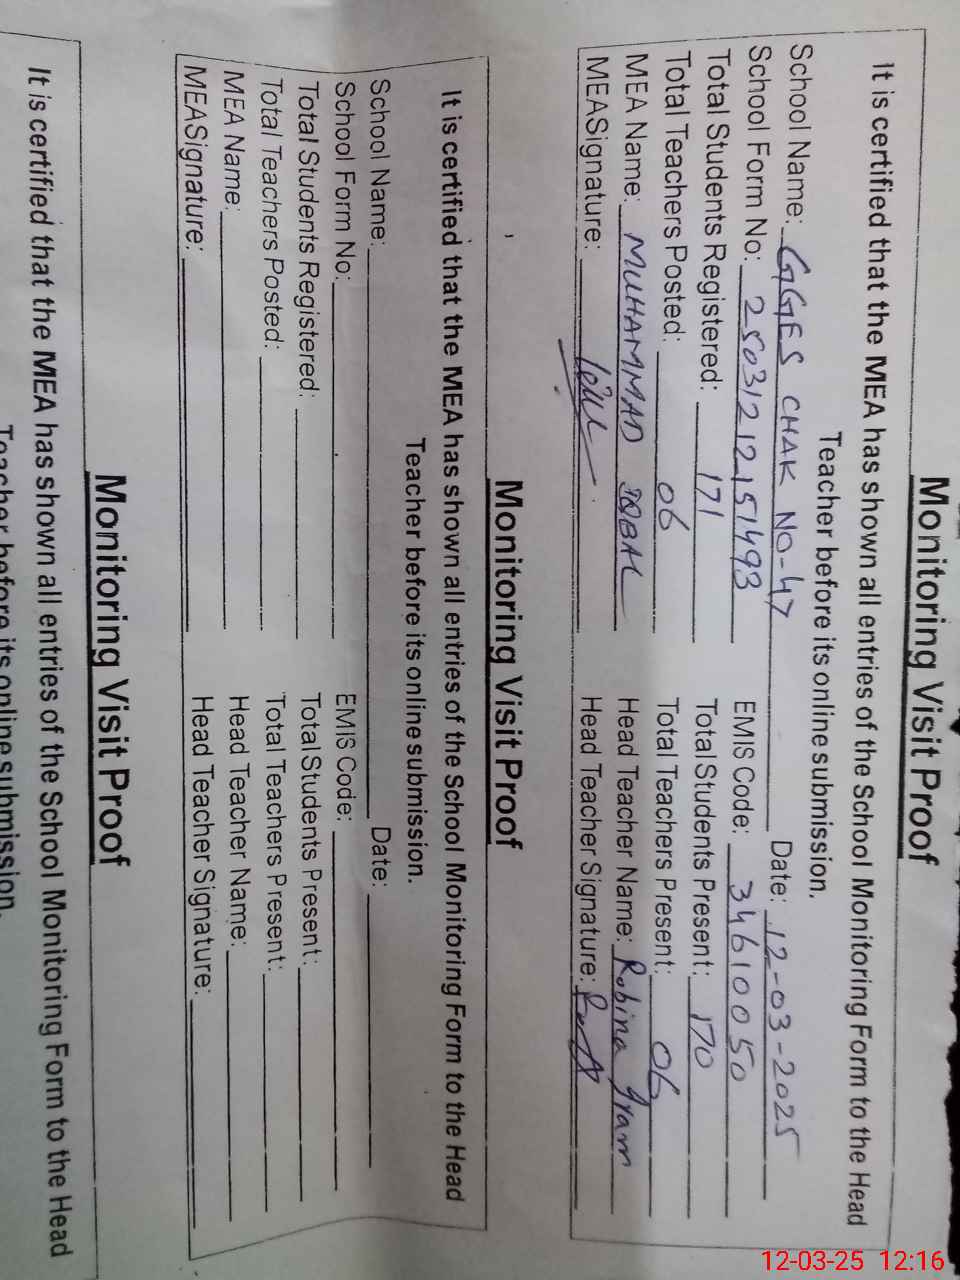 Monitoring Visit Proof
It is certified that the MEA has shown all entries of the School Monitoring Form to the Head
Teacher before its online submission.
School Name: GGES CHAK NO-47 Date: 12-03-2025
School Form No: 25031212151493 EMIS Code: 34610050
Total Students Registered: 171 Total Students Present: 170
Total Teachers Posted: 06 Total Teachers Present: 06
MEA Name: MUHAMMAD IQBAL Head Teacher Name: Robina
MEASignature: Head Teacher Signature:
Monitoring Visit Proof
It is certified that the MEA has shown all entries of the School Monitoring Form to the Head
Teacher before its online submission.
School Name: Date:
School Form No: EMIS Code:
Total Students Registered: Total Students Present:
Total Teachers Posted: Total Teachers Present:
MEA Name: Head Teacher Name:
MEASignature: Head Teacher Signature:
Monitoring Visit Proof
It is certified that the MEA has shown all entries of the School Monitoring Form to the Head
Teacher before its online submission.
12-03-25 12:16